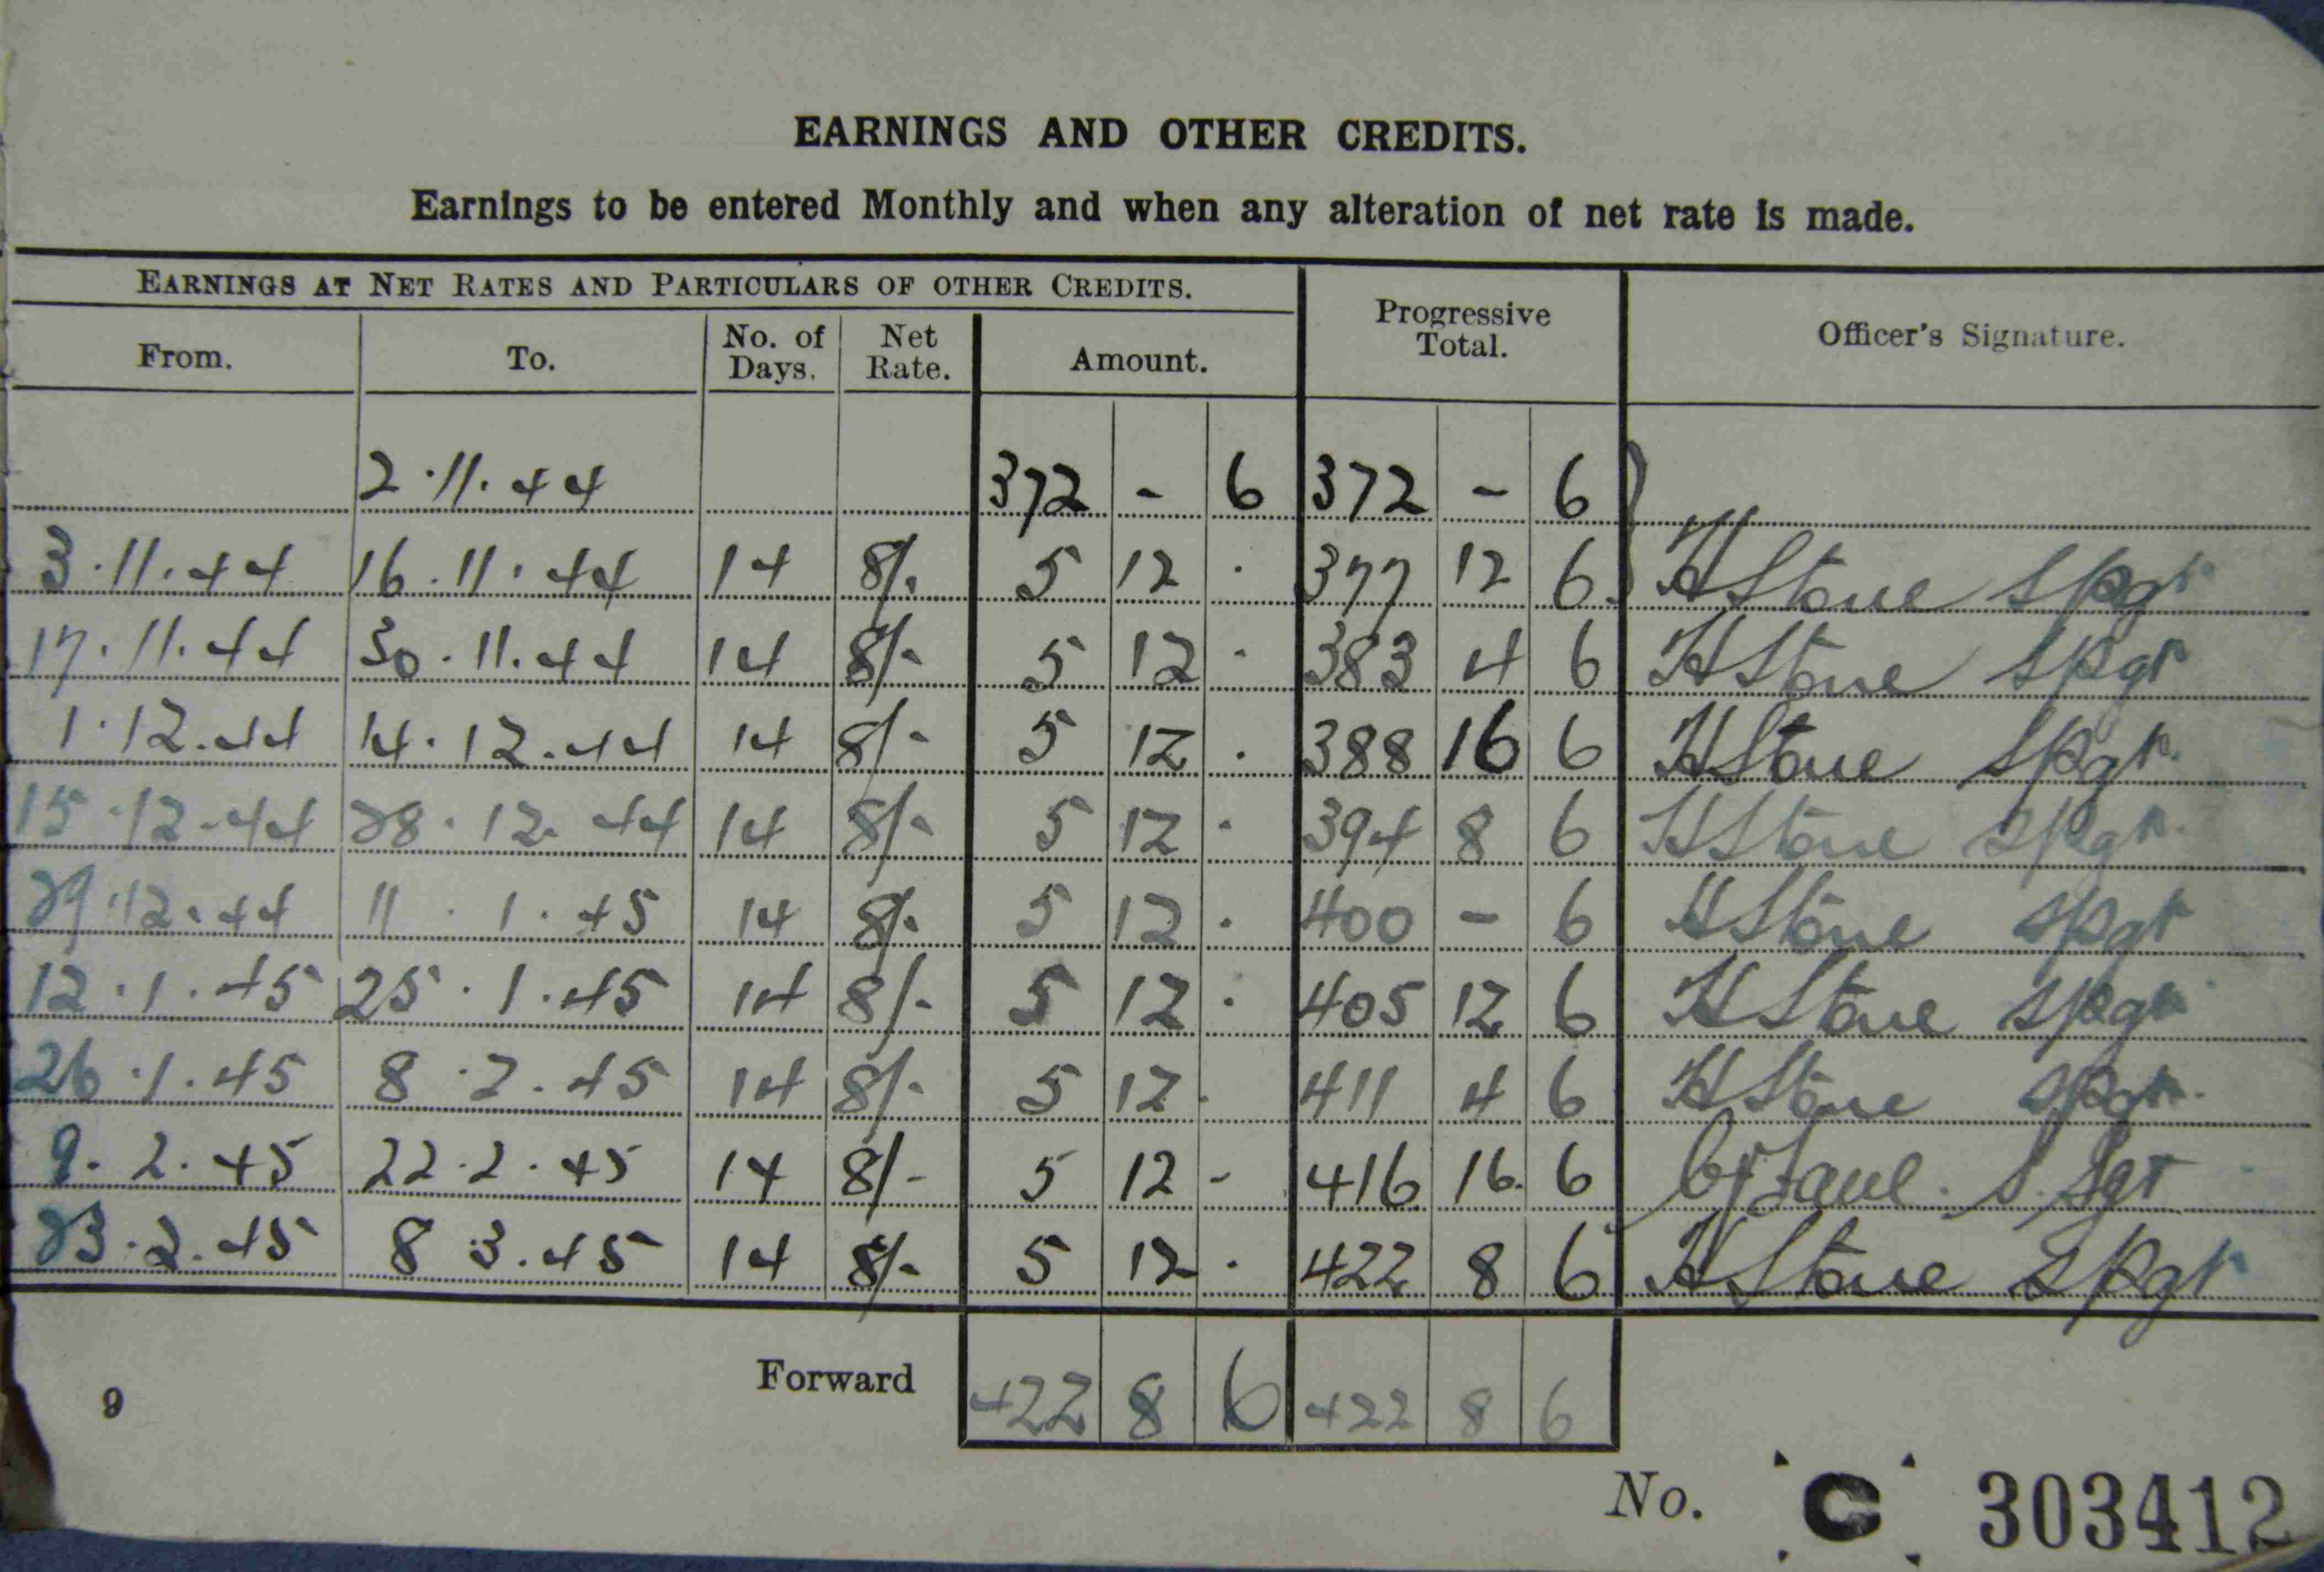 EARNINGS AND OTHER CREDITS.
Earnings to be entered Monthly and when any alteration of net rate is made.
EARNINGS AT NET RATES AND PARTICULARS OF OTHER CREDITS.
From. To. No. of Days. Net Rate. Amount. Progressive Total. Officer's Signature.
2.11.44 372 - 6 372 - 6
3.11.44 16.11.44 14 8/. 5 12 . 377 12 6 HStone
17.11.44 30.11.44 14 8/- 5 12 - 383 4 6 HStone
1.12.44 14.12.44 14 8/- 5 12 . 388 16 6 HStone
15.12.44 28.12.44 14 8/- 5 12 . 394 8 6 HStone
29.12.44 11.1.45 14 8/- 5 12 . 400 - 6 HStone
12.1.45 25.1.45 14 8/- 5 12 . 405 12 6 HStone
26.1.45 8.2.45 14 8/- 5 12 . 411 4 6 HStone
9.2.45 22.2.45 14 8/- 5 12 - 416 16. 6 S.Sgt
23.2.45 8.3.45 14 8/- 5 12 . 422 8 6 HStone
Forward 422 8 6 422 8 6
9
No. C 303412